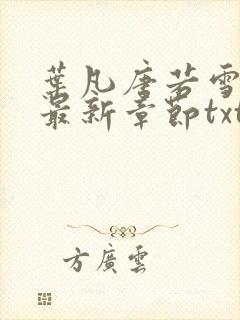 葉凡唐若雪
最新章節txt
方廣雲